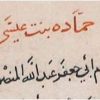 حماده بنت عيسى
أم أبي جعفر عبد الله المنصور